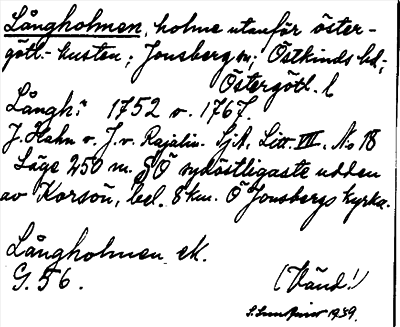 Långholmen, holme utanför öster-
götl.-kusten; Jonsberg sn; Östkinds hd;
Östergötl. l
Långh: 1752 o. 1767.
J. Hahn o. J. v. Rajalin. Sjk. Litt. III. No 18
Läge 250 m. SÖ sydöstligaste udden
av Korsön, bel. 8 km. Ö Jonsbergs kyrka.
Långholmen ek.
G. 56.
(Vänd!)
1939.